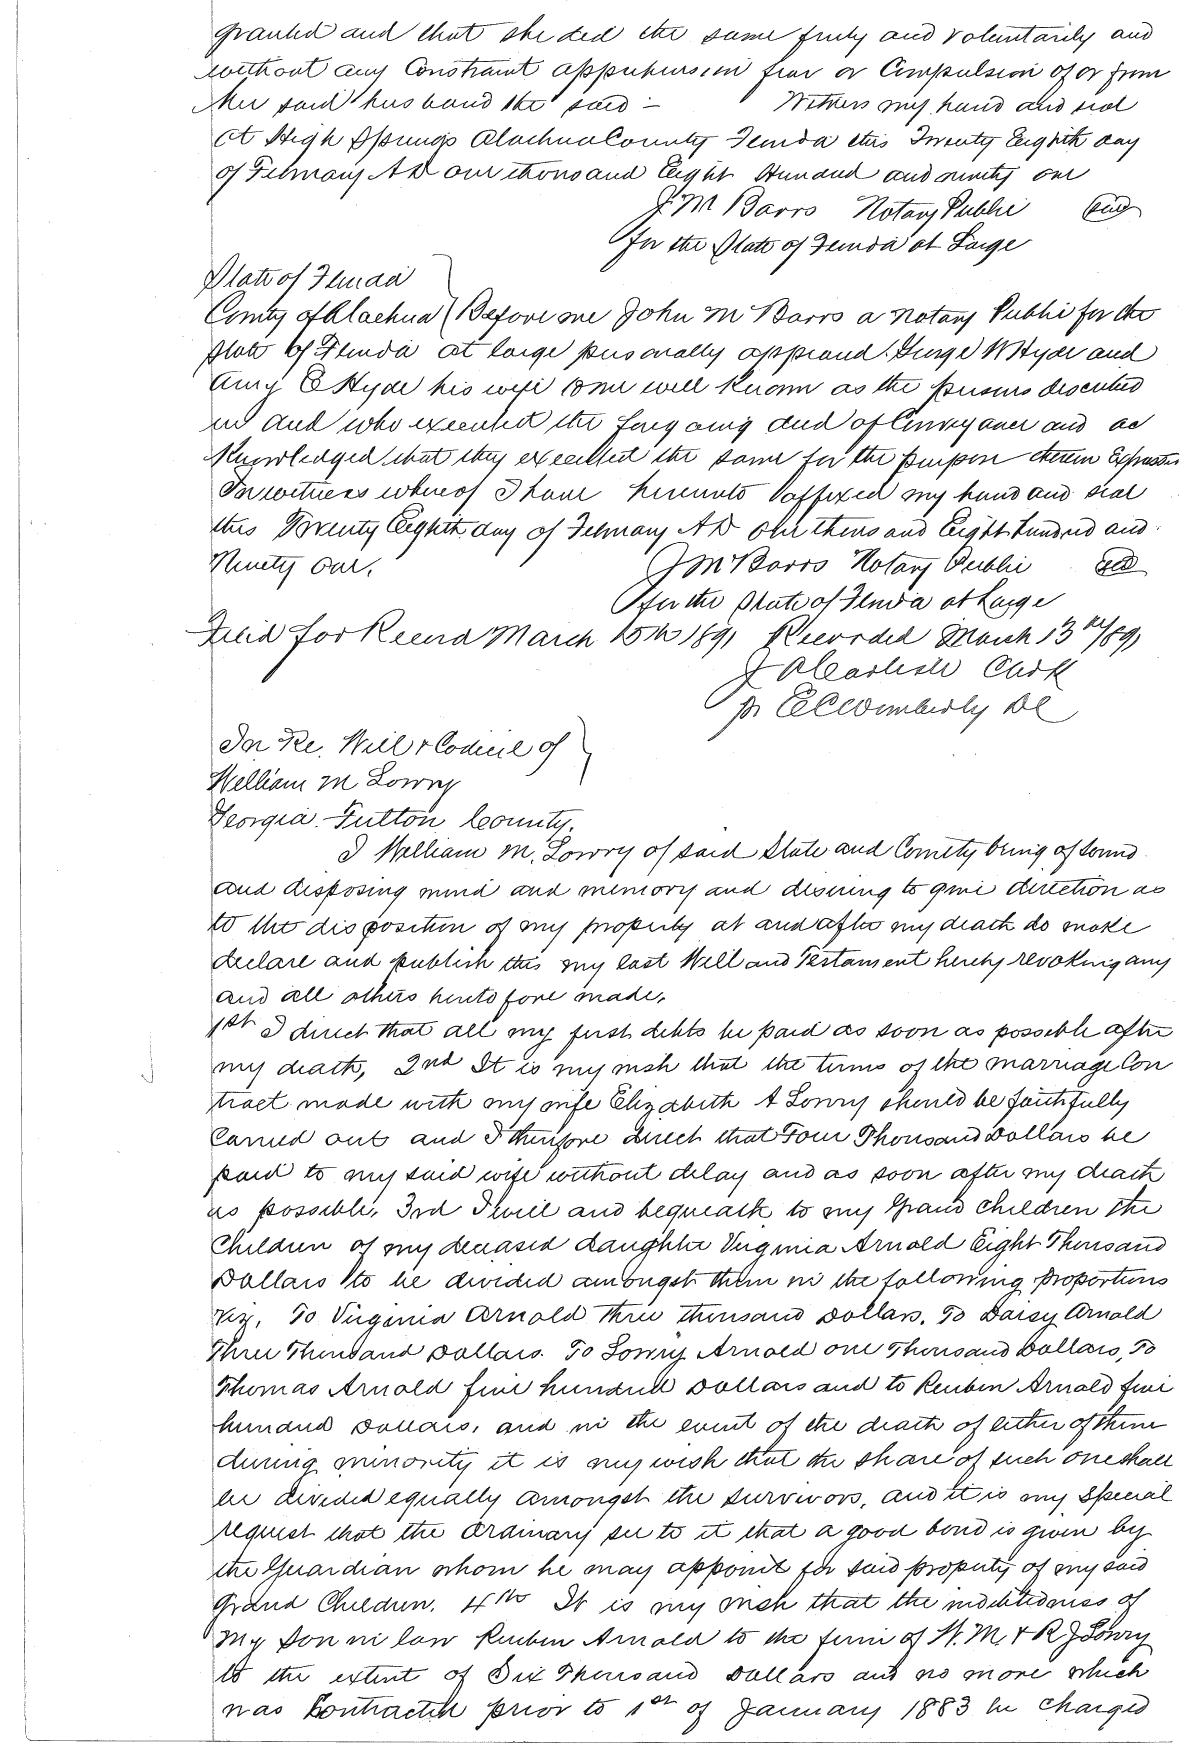 granted and that she did the same freely and voluntarily and
without any Constraint apprehension fear or Compulsion of or from
her said husband the said — Witness my hand and seal
at High Springs Alachua County Florida this Twenty Eighth day
of February A D one thousand Eight Hundred and ninety one
J M Barrs Notary Public Seal
for the State of Florida at Large
State of Florida
County of Alachua Before me John M Barrs a Notary Public for the
State of Florida at large personally appeared George W Hyde and
Amy E Hyde his wife to me well known as the persons described
in and who executed the foregoing deed of Conveyance and ac
knowledged that they executed the same for the purpose therein Expressed
In witness whereof I have hereunto affixed my hand and seal
this Twenty Eighth day of February A D one thousand Eight hundred and
Ninety One. J M Barrs Notary Public seal
for the State of Florida at Large
Filed for Record March 10th 1891 Recorded March 13th/891
J A Carlisle Clerk
pr E C Wimberly D C
In Re. Will & Codicil of
William M Lowry
Georgia. Fulton County.
I William M. Lowry of said State and County being of sound
and disposing mind and memory and desiring to give direction as
to the disposition of my property at and after my death do make
declare and publish this my last Will and Testament hereby revoking any
and all others heretofore made.
1st I direct that all my just debts be paid as soon as possible after
my death, 2nd It is my wish that the terms of the marriage Con
tract made with my wife Elizabeth A Lowry should be faithfully
Carried out and I therefore direct that Four Thousand Dollars be
paid to my said wife without delay and as soon after my death
as possible. 3rd I will and bequeath to my Grand Children the
Children of my deceased daughter Virginia Arnold Eight Thousand
Dollars to be divided amongst them in the following proportions
viz. To Virginia Arnold three thousand Dollars. To Daisy Arnold
Three Thousand Dollars. To Lowry Arnold one Thousand Dollars, To
Thomas Arnold five hundred Dollars and to Reuben Arnold five
hundred Dollars, and in the event of the death of either of them
during minority it is my wish that the share of such one shall
be divided equally amongst the survivors, and it is my special
request that the Ordinary see to it that a good bond is given by
the Guardian whom he may appoint for said property of my said
Grand Children. 4th It is my wish that the indebtedness of
My Son in law Reuben Arnold to the firm of W. M. & R J Lowry
to the extent of Six Thousand Dollars and no more which
was Contracted prior to 1st of January 1883 be charged